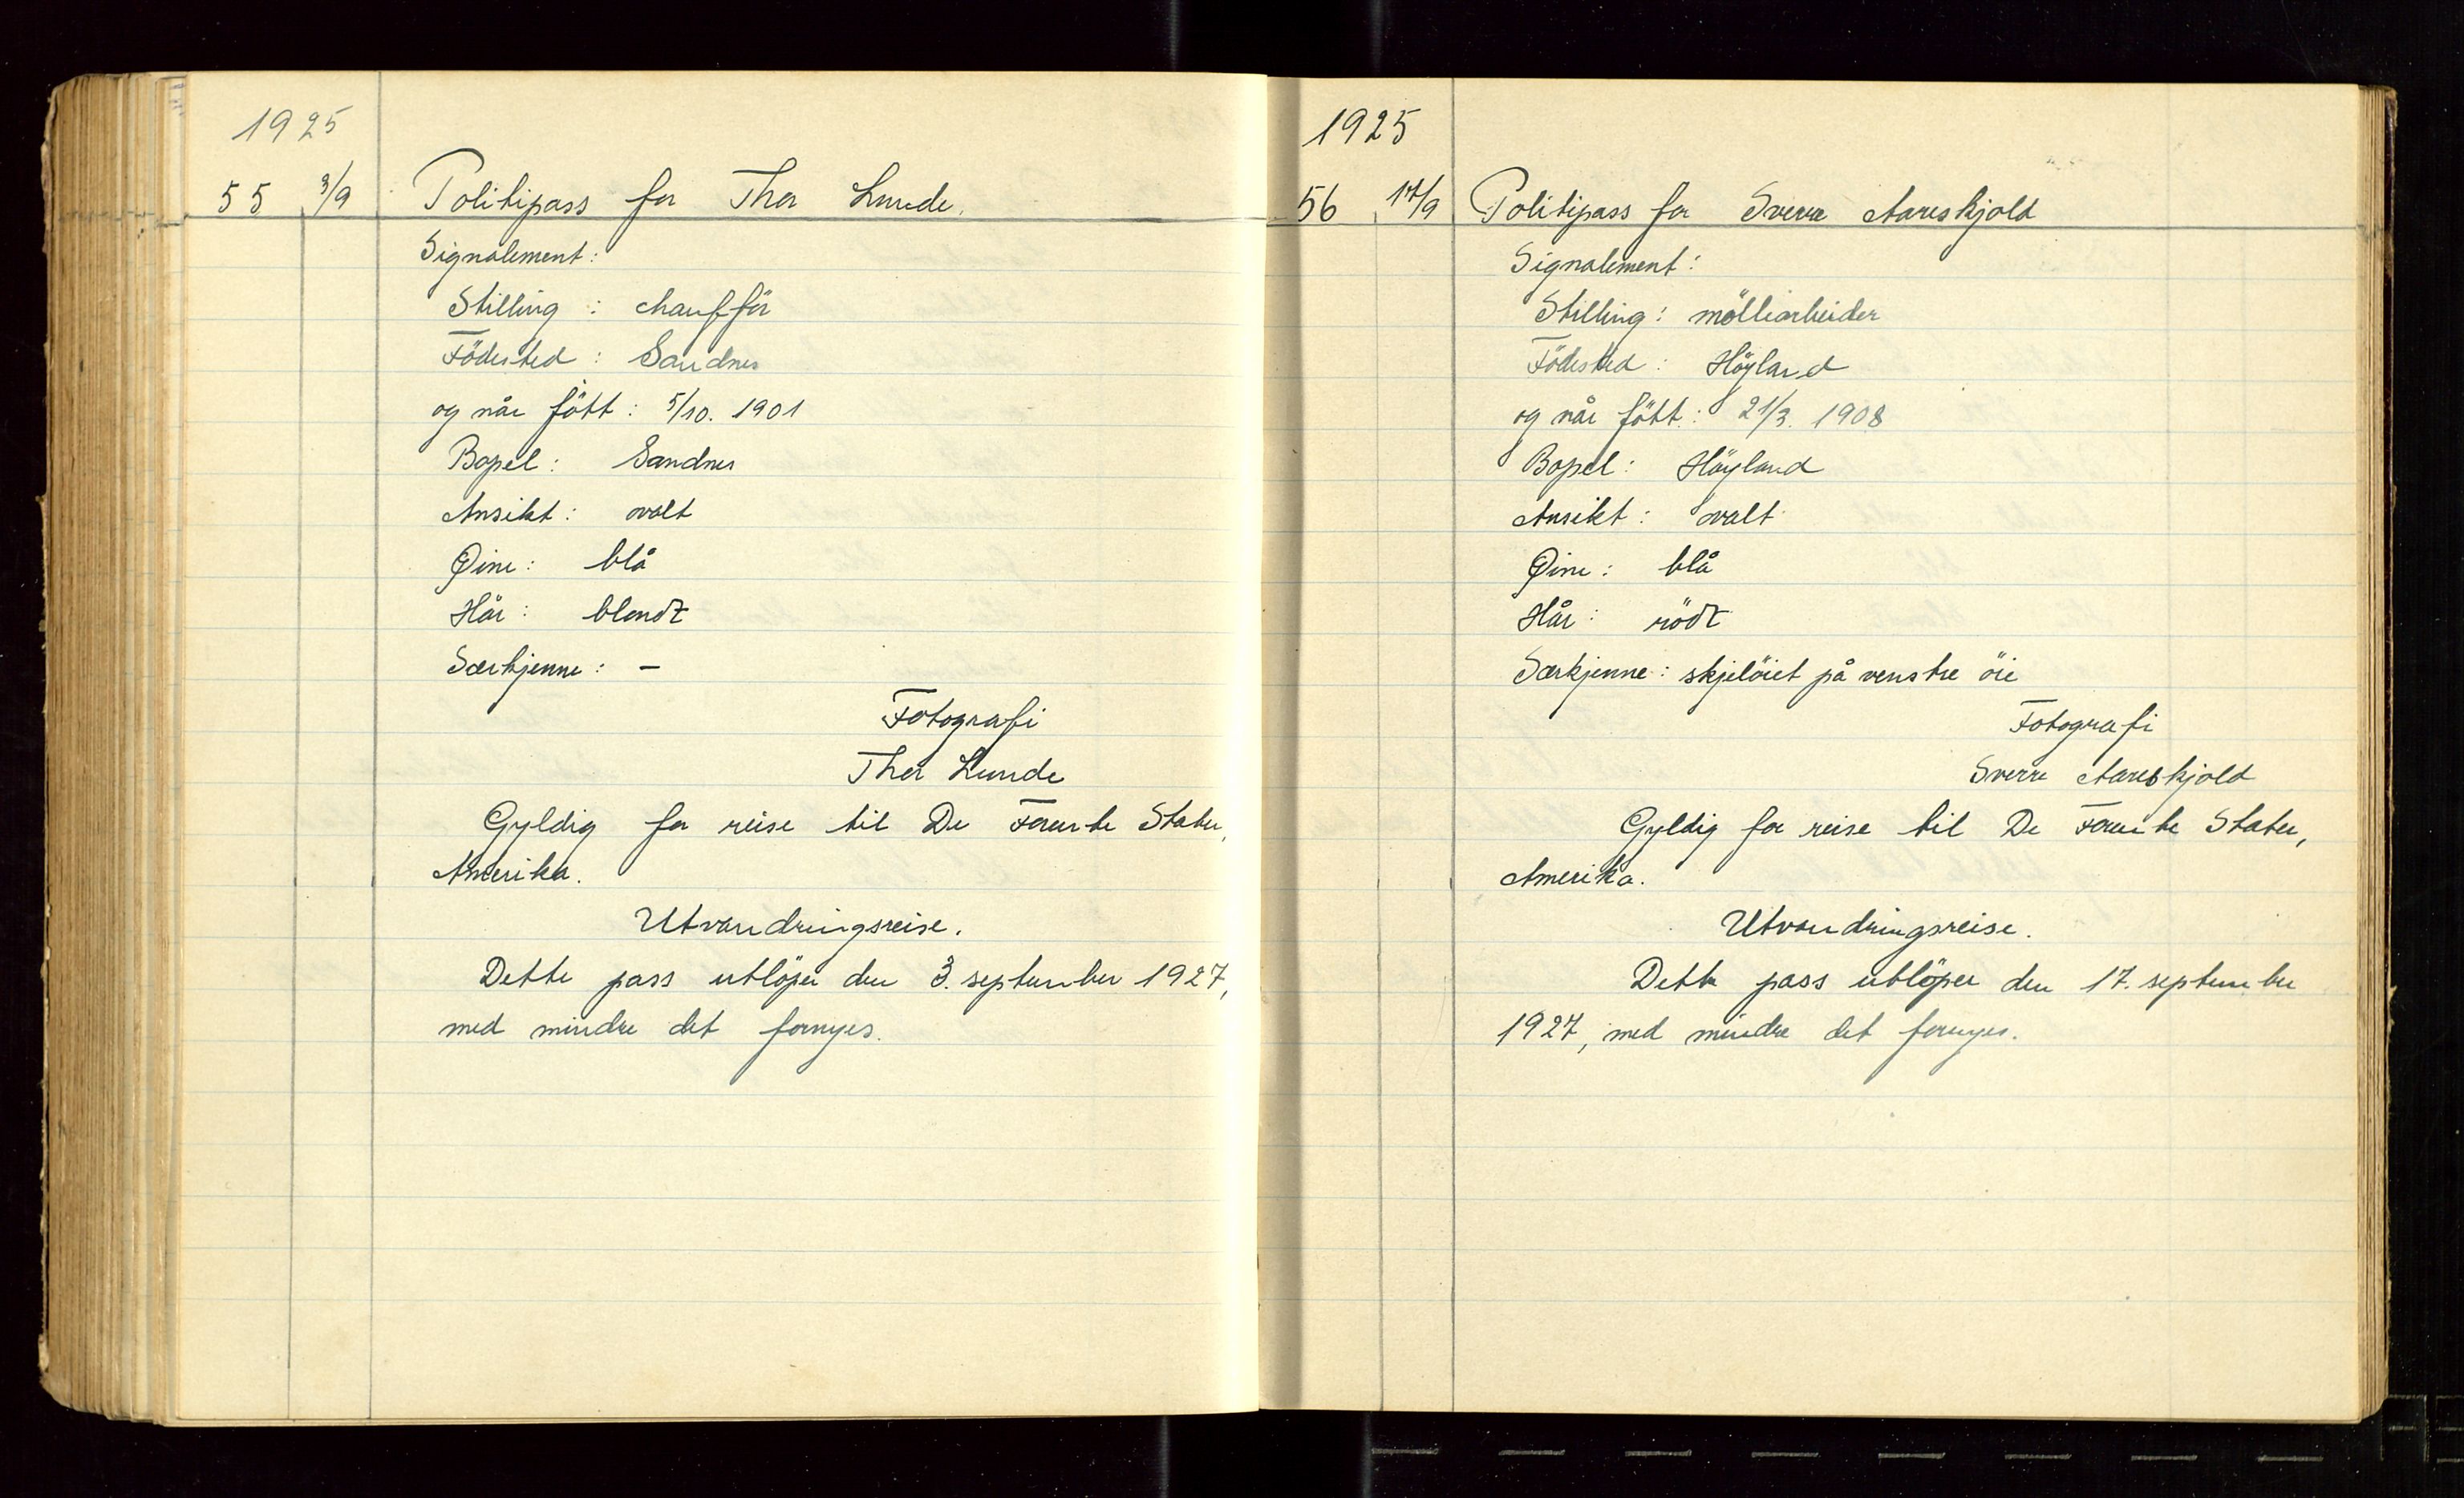 1925
55 3/9 Politipass for Thor Lunde.
Signalement:
Stilling: chaufför
Födested: Sandnes
og når fött: 5/10. 1901
Bopel: Sandnes
Ansikt: ovalt
Øine: blå
Hår: blondt
Særkjenne: —
Fotografi
Thor Lunde
Gyldig for reise til De Forente Stater,
Amerika.
Utvandringsreise.
Dette pass utlöper den 3. september 1927,
med mindre det fornyes.
1925
56 17/9 Politipass for Sverre Aareskjold
Signalement:
Stilling: möllearbeider
Födested: Höyland
og når fött: 21/3. 1908
Bopel: Höyland
Ansikt: ovalt
Øine: blå
Hår: rödt
Særkjenne: skjelöiet på venstre öie
Fotografi
Sverre Aareskjold
Gyldig for reise til De Forente Stater,
Amerika.
Utvandringsreise.
Dette pass utlöper den 17. september
1927, med mindre det fornyes.